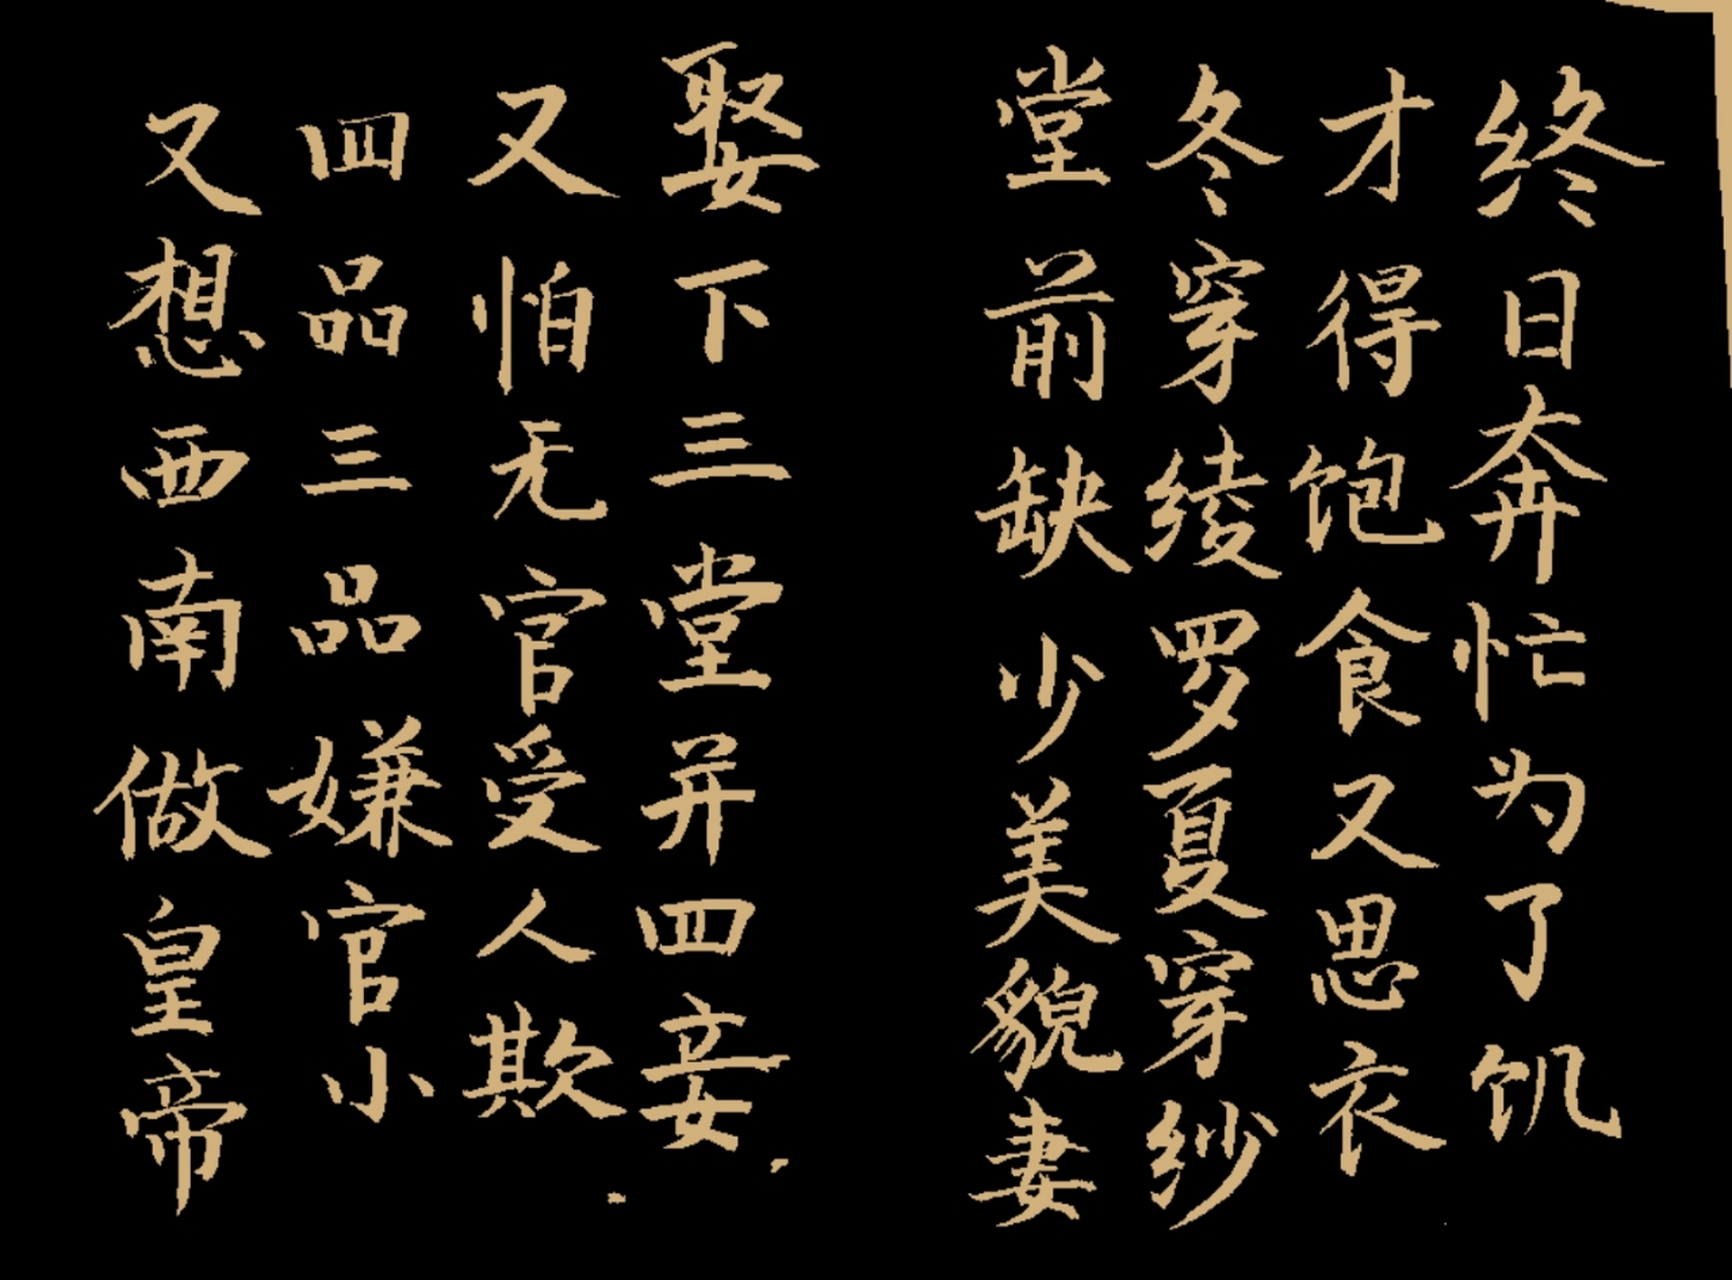 终日奔忙为了饥
才得饱食又思衣
冬穿绫罗夏穿纱
堂前缺少美貌妻
娶下三堂并四妾
又怕无官受人欺
四品三品嫌官小
又想西南做皇帝